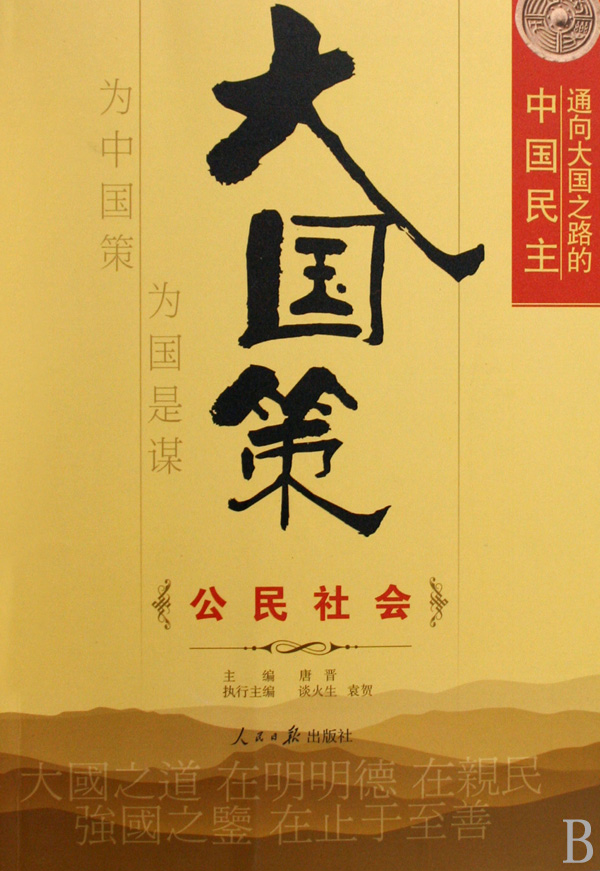 通向大国之路的
中国民主
大国策
为中国策
为国是谋
公民社会
主 编 唐 晋
执行主编 谈火生 袁贺
人民日报出版社
大國之道 在明明德 在親民
強國之鑒 在止于至善
B